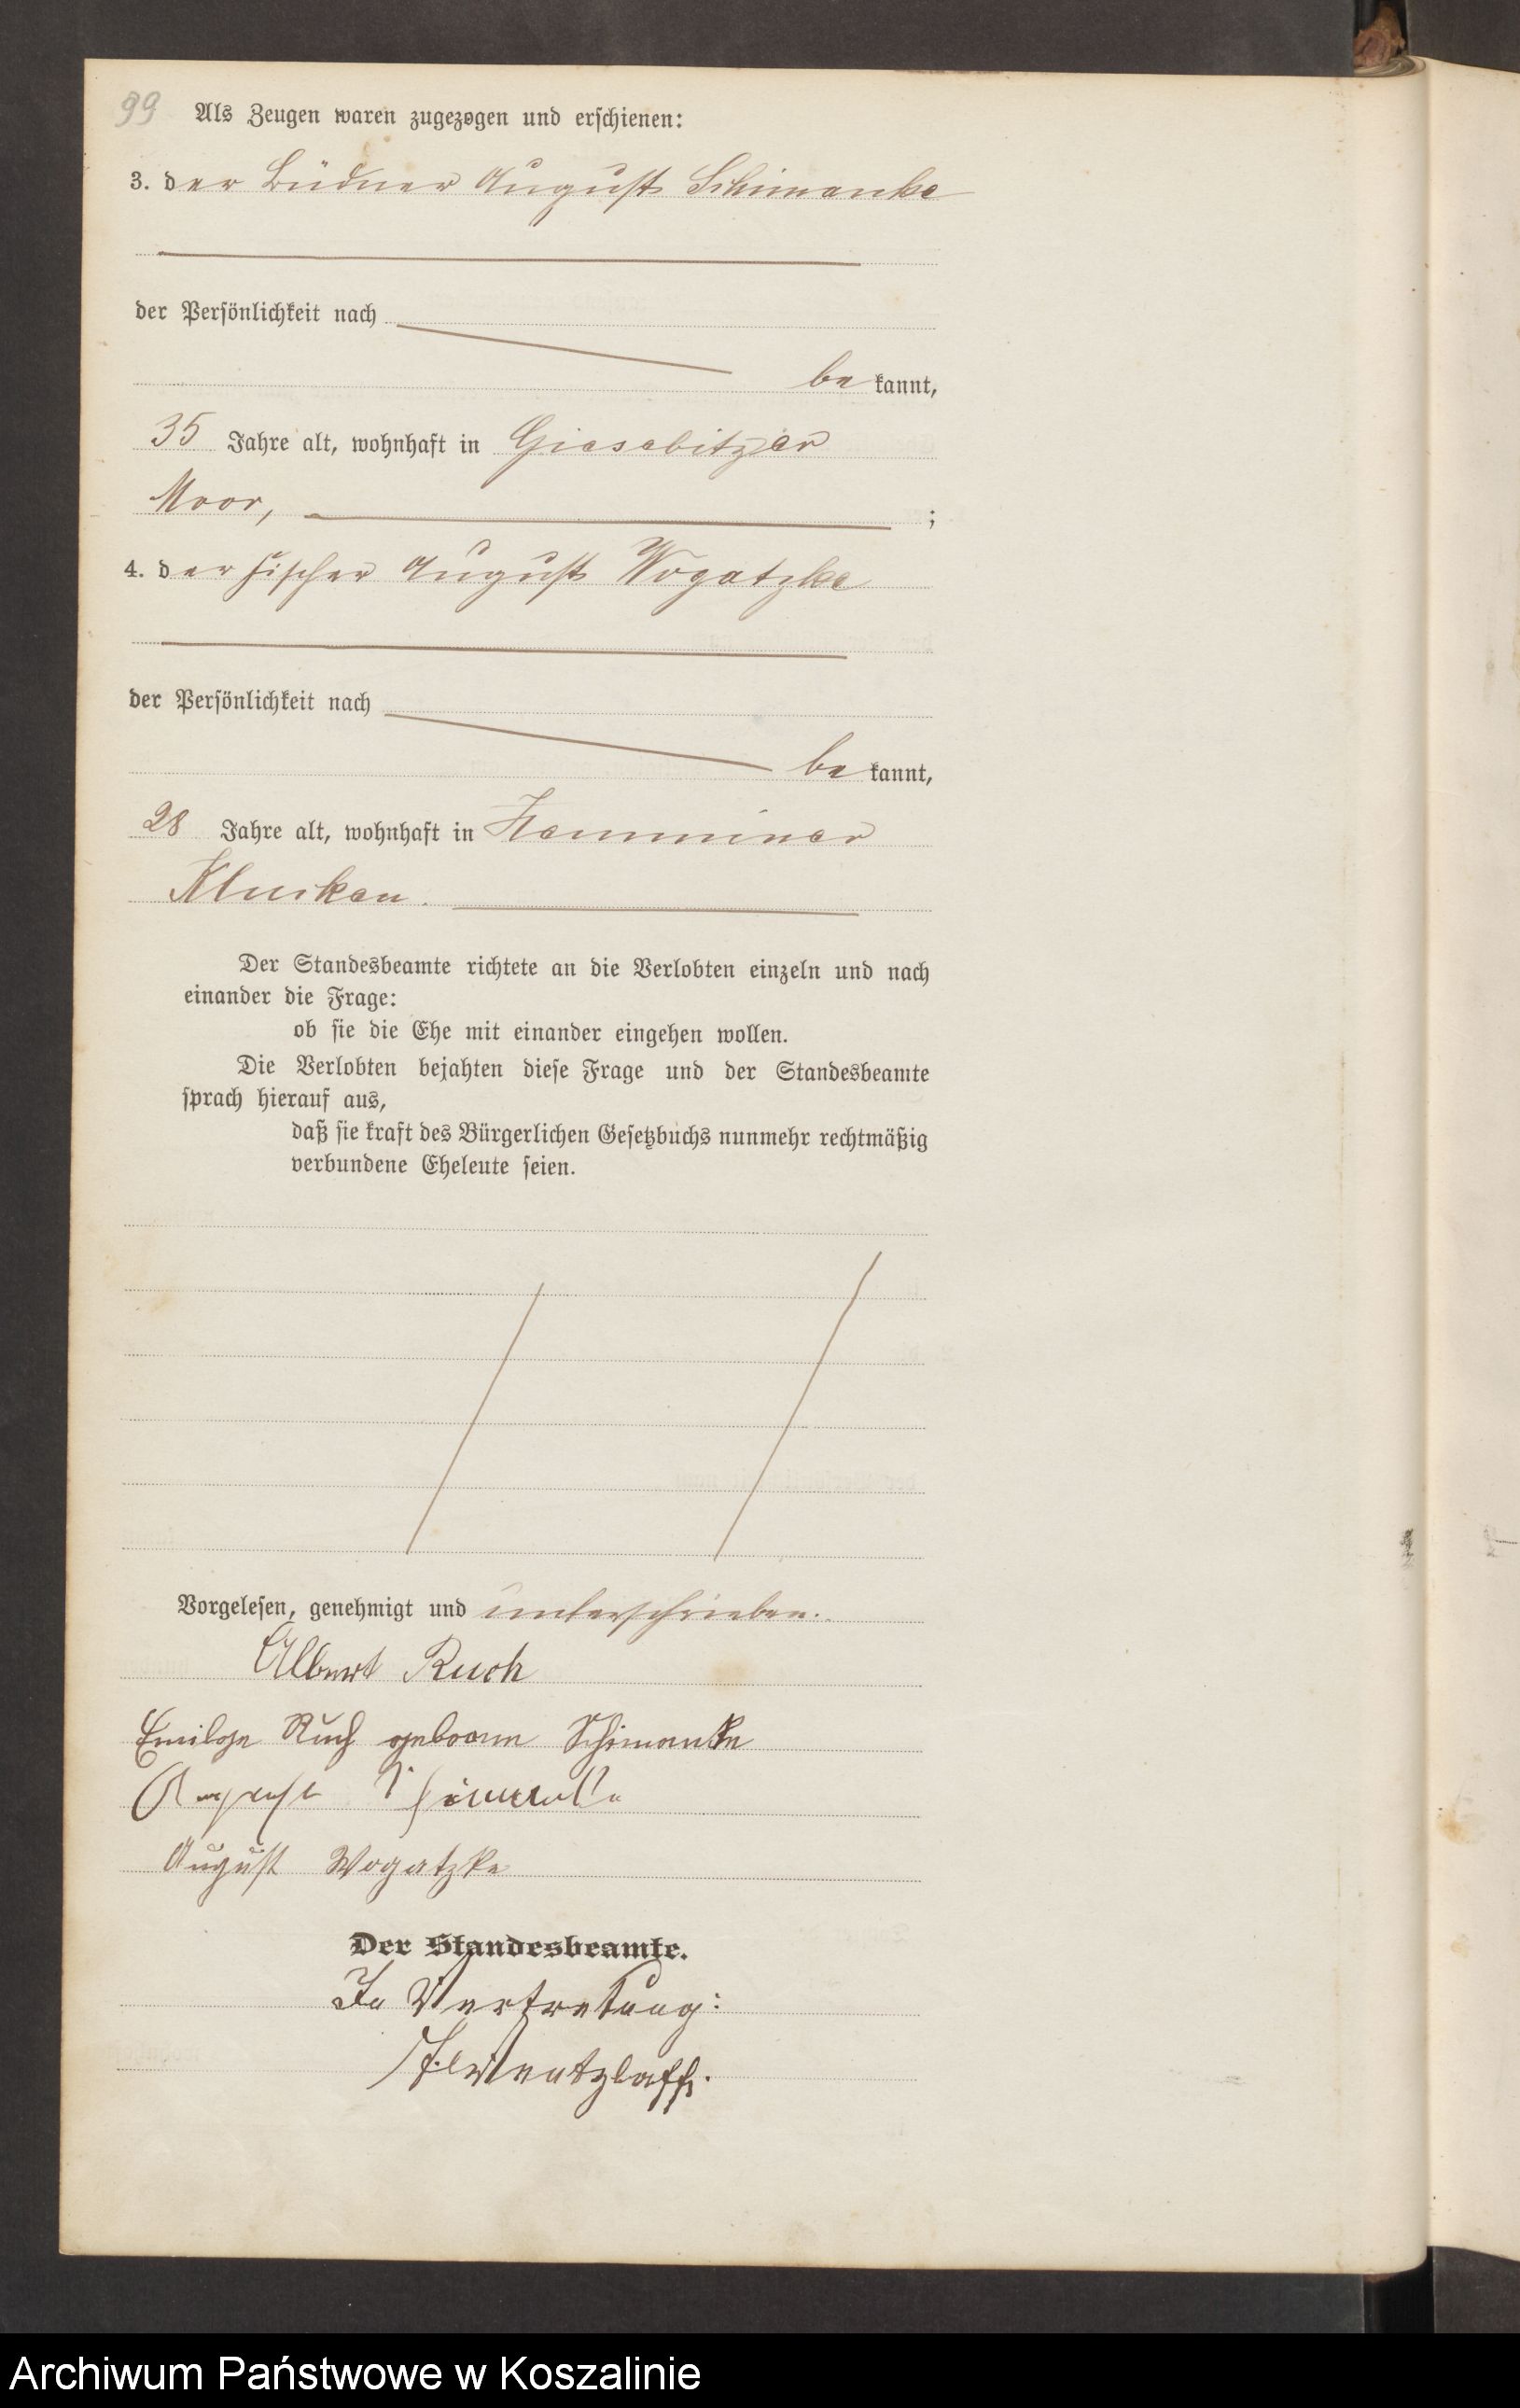 99 Als Zeugen waren zugezogen und erschienen:
3. der Büdner August Schimanke
der Persönlichkeit nach
bekannt,
35 Jahre alt, wohnhaft in Giesebitzer
Moor, ;
4. der Fischer August Wogatzke
der Persönlichkeit nach
bekannt,
28 Jahre alt, wohnhaft in Zemminer
Klucken.
Der Standesbeamte richtete an die Verlobten einzeln und nach
einander die Frage:
ob sie die Ehe mit einander eingehen wollen.
Die Verlobten bejahten diese Frage und der Standesbeamte
sprach hierauf aus,
daß sie kraft des Bürgerlichen Gesetzbuchs nunmehr rechtmäßig
verbundene Eheleute seien.
Vorgelesen, genehmigt und unterschrieben.
Albert Ruch
Ruch geborne Schimanke
August
August Wogatzke
Der Standesbeamte.
In Vertretung:
Archiwum Państwowe w Koszalinie